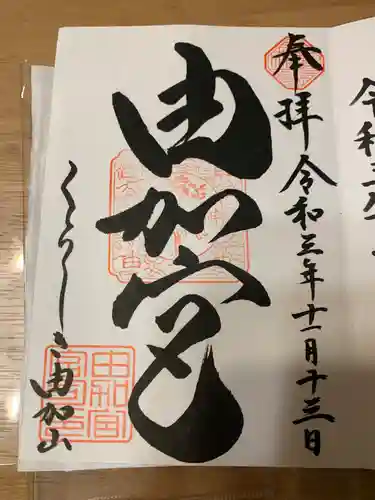 奉拝 令和三年十一月十三日
由加宮
くらしき由加山
由加宮
令和三年